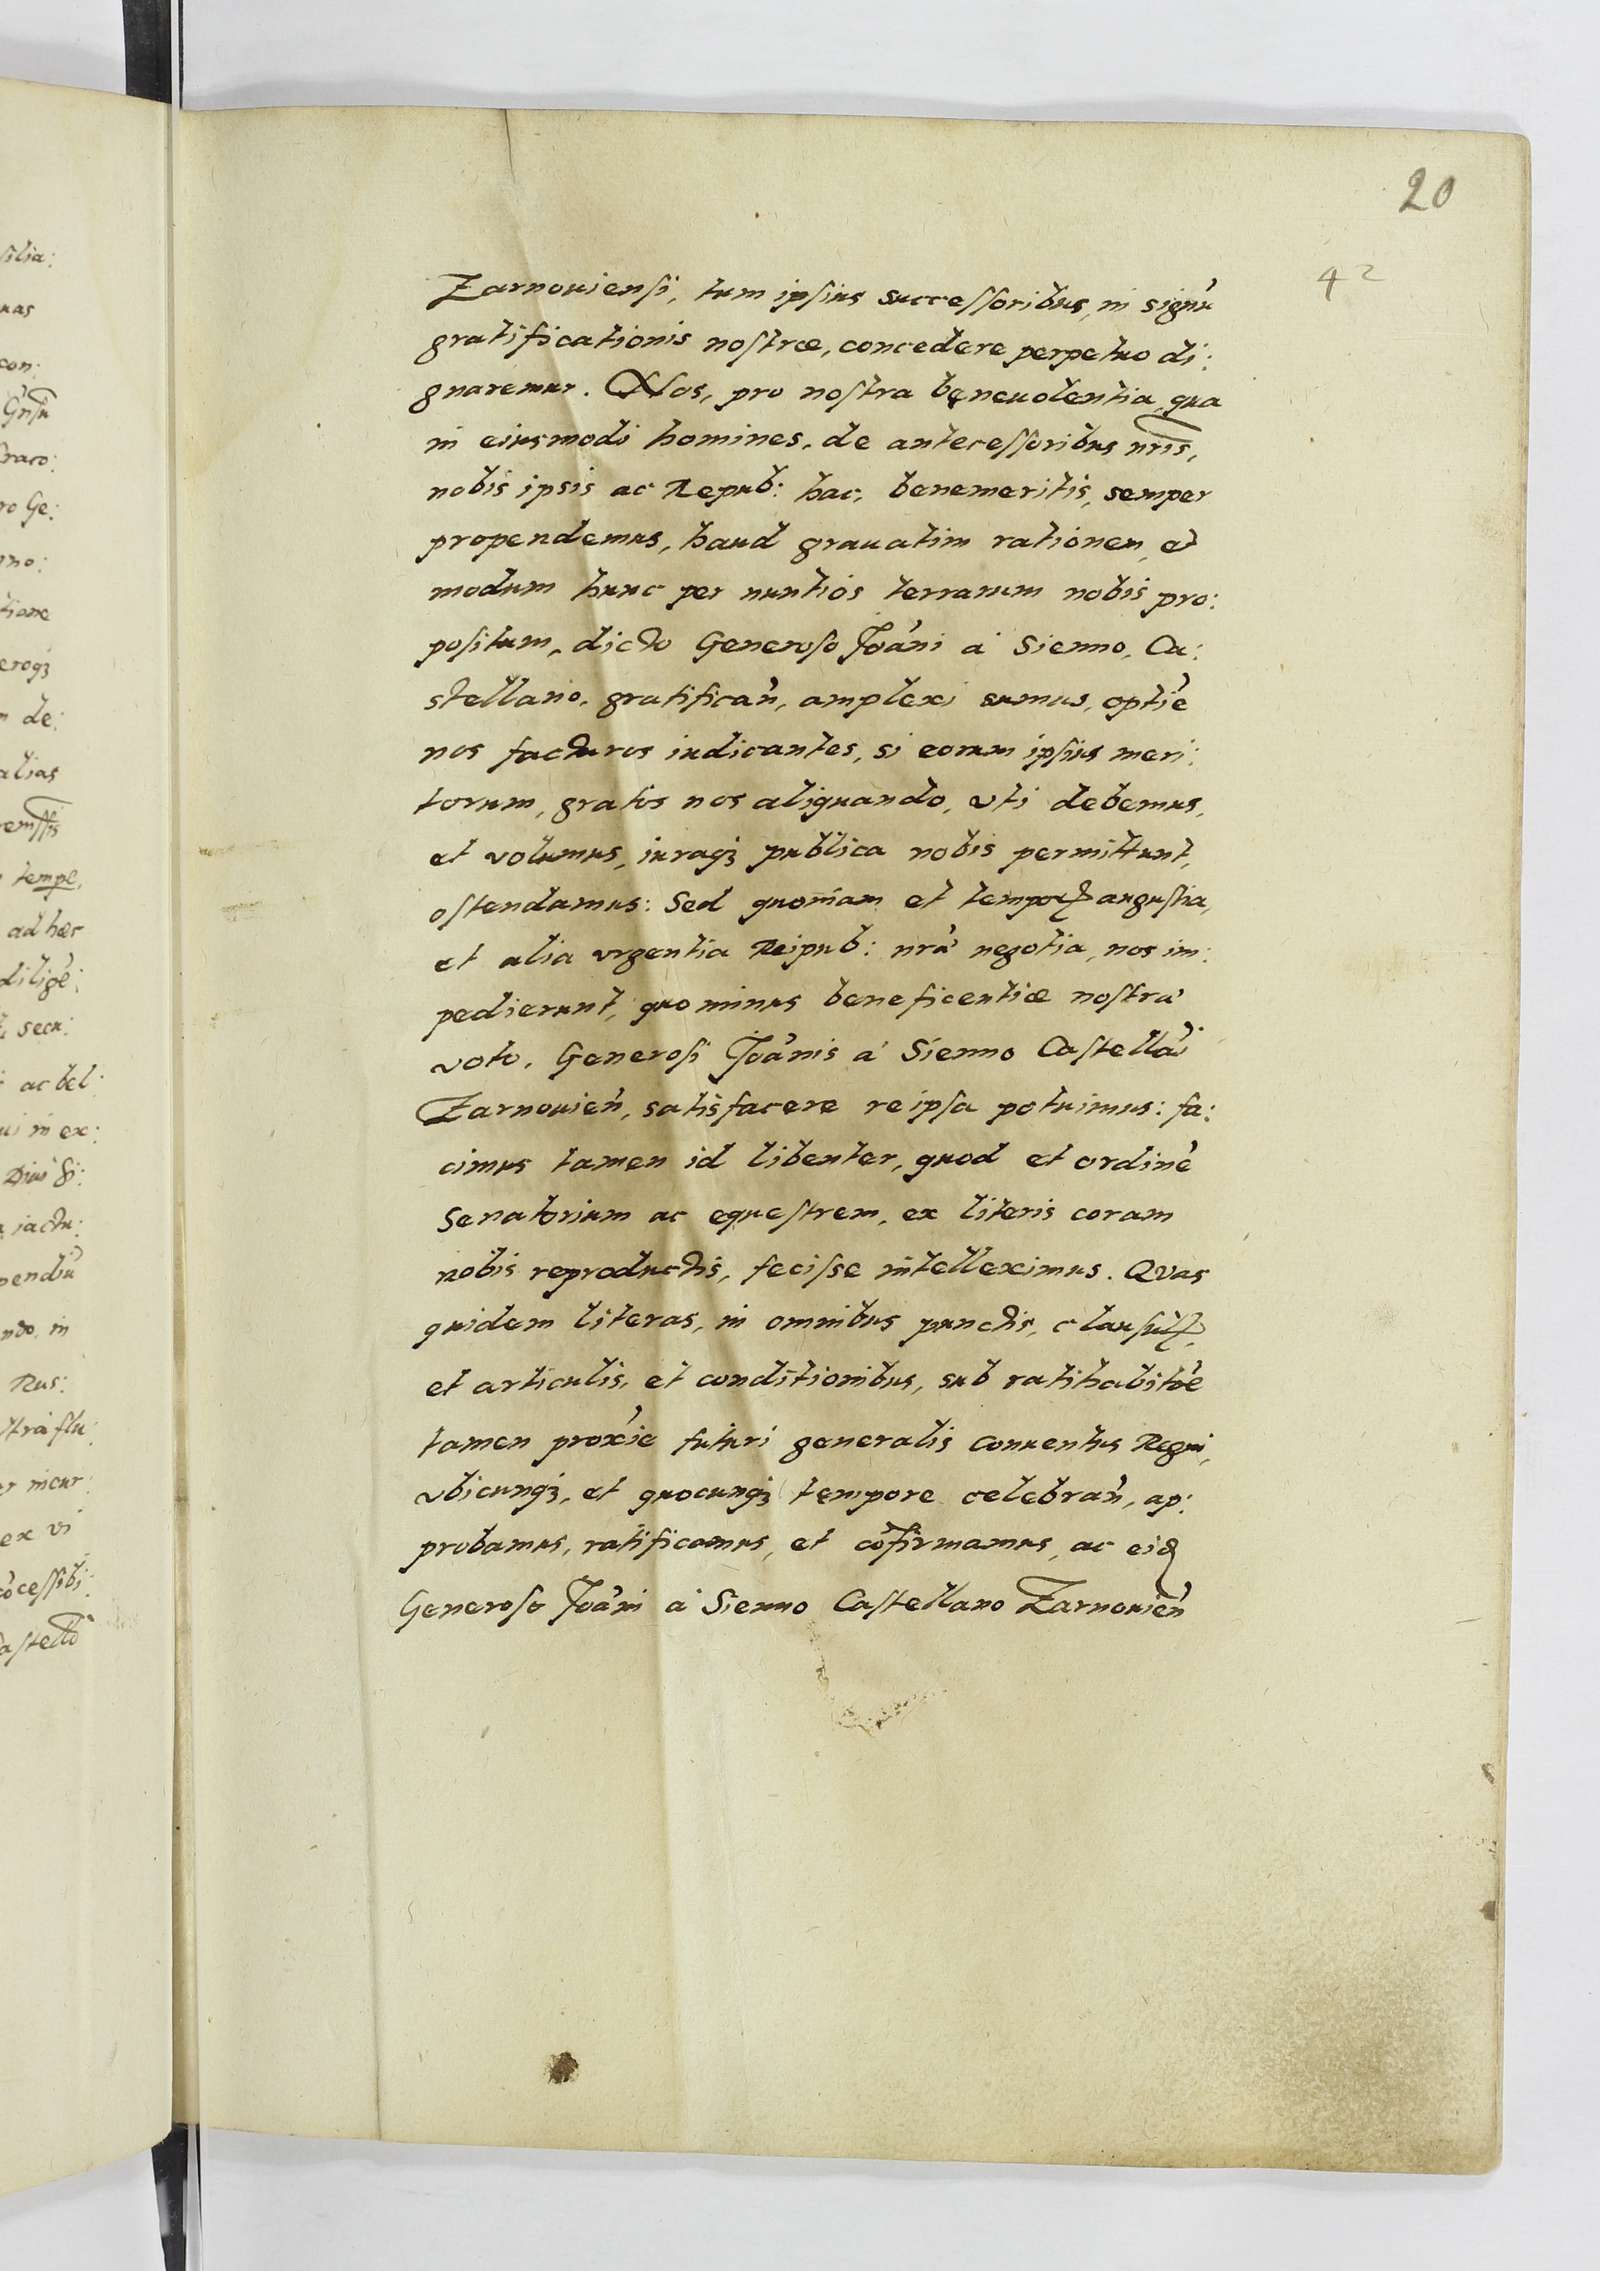 20
42
Zarnouiensi, tum ipsius successoribus, in signu̓
gratificationis nostræ, concedere perpetuo di:
gnaremur. Nos, pro nostra beneuolentia, qua
in eiusmodi homines, de antecessoribus nr̃is,
nobis ipsis ac Repub: hac, benemeritis, semper
propendemus, haud grauatim rationem, et
modum hunc per nuntios terrarum nobis pro:
positum, dicto Generoso Joa̓ni à Sienno, Ca:
stellano, gratifican̓, amplexi sumus, optie̓
nos facturos iudicantes, si eorum ipsius meri:
torum, gratos nos aliquando, vti debemus,
et volumus, iuraqꝫ publica nobis permittunt,
ostendamus: Sed quoniam et tempoꝝ angustia,
et alia vrgentia Reipub: nra̓ negotia, nos im:
pedierunt, quominus beneficentiæ nostra̓
voto, Generosi Joa̓nis à Sienno Castella̓i
Zarnouien̓, satisfacere reipsa potuimus: fa:
cimus tamen id libenter, quod et ordine̓
Senatorium ac equestrem, ex literis coram
nobis reproductis, fecisse intelleximus. Quas
quidem literas, in omnibus punctis, clausul̓,
et articulis, et conditionibus, sub ratihabitoe̓
tamen proxie̓ futuri generalis conuentus Regni,
vbicunqꝫ, et quocunqꝫ tempore celebran̓, ap:
probamus, ratificamus, et co̓firmamus, ac eid̓
Generoso Joa̓ni à Sienno Castellano Zarnouien̓
silia:
uas
con:
Gnsu
Craco:
ro Ge:
tione
eroqꝫ
m de:
alias
temp̱e,
ad hæc
dilige̓:
secu:
ac bel:
ui in ex:
iactu:
pendiu̓
ndo, in
Rus:
stra̓ flu:
er incur:
ex vi
co̓cessibi:
astello̓